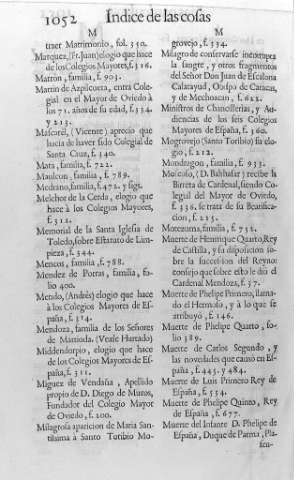 1052 Indice de las cosas
M
traer Matrimonio, fol. 350.
Marquez, (Fr. Juan) elogio que hace
de los Colegios Mayores, f. 316.
Martòn, familia, f. 903.
Martin de Azpilcueta, entra Cole-
gial en el Mayor de Oviedo à
los 71. años de su edad, f. 334.
y 213.
Mascarel, (Vicente) aprecio que
hacia de haver sido Colegial de
Santa Cruz, f. 340.
Mata, familia, f. 722.
Mauleon, familia, f. 789.
Medrano, familia, f. 472. y sigs.
Melchor de la Cerda, elogio que
hace à los Colegios Mayores,
f. 312.
Memorial de la Santa Iglesia de
Toledo, sobre Estatuto de Lim-
pieza, f. 344.
Mencos, familia, f. 788.
Mendez de Porras, familia, fo-
lio 400.
Mendo, (Andrès) elogio que hace
à los Colegios Mayores de Es-
paña, f. 314.
Mendoza, familia de los Señores
de Martioda. (Vease Hurtado)
Middendorpio, elogio que hace
de los Colegios Mayores de Es-
paña, f. 311.
Miguez de Vendaña, Apellido
propio de D. Diego de Muros,
Fundador del Colegio Mayor
de Oviedo, f. 200.
Milagrosa aparicion de Maria San-
tisima à Santo Toribio Mo-
M
grovejo, f. 334.
Milagro de conservarse inexhausta
la sangre, y otros fragmentos
del Señor Don Juan de Escalona
Calatayud, Obispo de Caracas,
y de Mechoacan, f. 622.
Ministros de Chancillerias, y Au-
diencias de los seis Colegios
Mayores de España, f. 360.
Mogrovejo (Santo Toribio) su elo-
gio, f. 212.
Mondragon, familia, f. 933.
Moscoso, (D. Balthasar) recibe la
Birreta de Cardenal, siendo Co-
legial del Mayor de Oviedo,
f. 336. se trata de su Beatifica-
cion, f. 215.
Motezuma, familia, f. 752.
Muerte de Henrique Quarto, Rey
de Castilla, y su disposicion so-
bre la succession del Reyno:
consejo que sobre esto le diò el
Cardenal Mendoza, f. 37.
Muerte de Phelipe Primero, llama-
do el Hermoso, y à lo que se
arribuyò, f. 146.
Muerte de Phelipe Quarto, fo-
lio 389.
Muerte de Carlos Segundo, y
las novedades que causò en Es-
paña, f. 445. y 484.
Muerte de Luis Primero Rey de
España, f. 554.
Muerte de Phelipe Quinto, Rey
de España, f. 677.
Muerte del Infante D. Phelipe de
España, Duque de Parma, Pla-
sen-